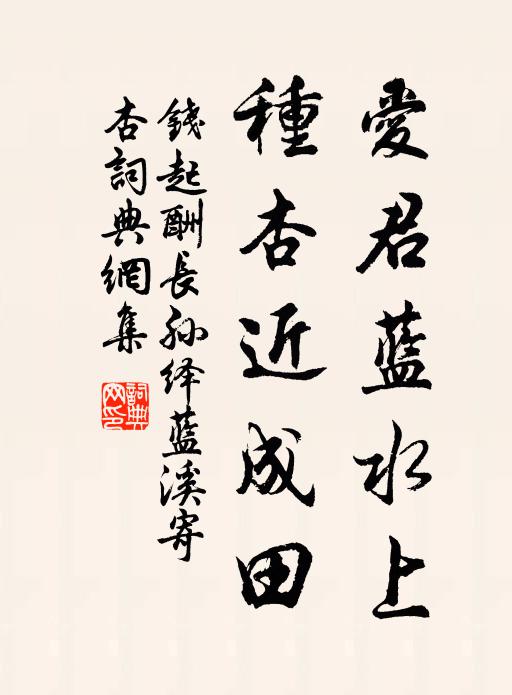 愛君藍水上
種杏近成田
錢起酬長孙绎藍溪寄
杏詞典網集
詞典
网印